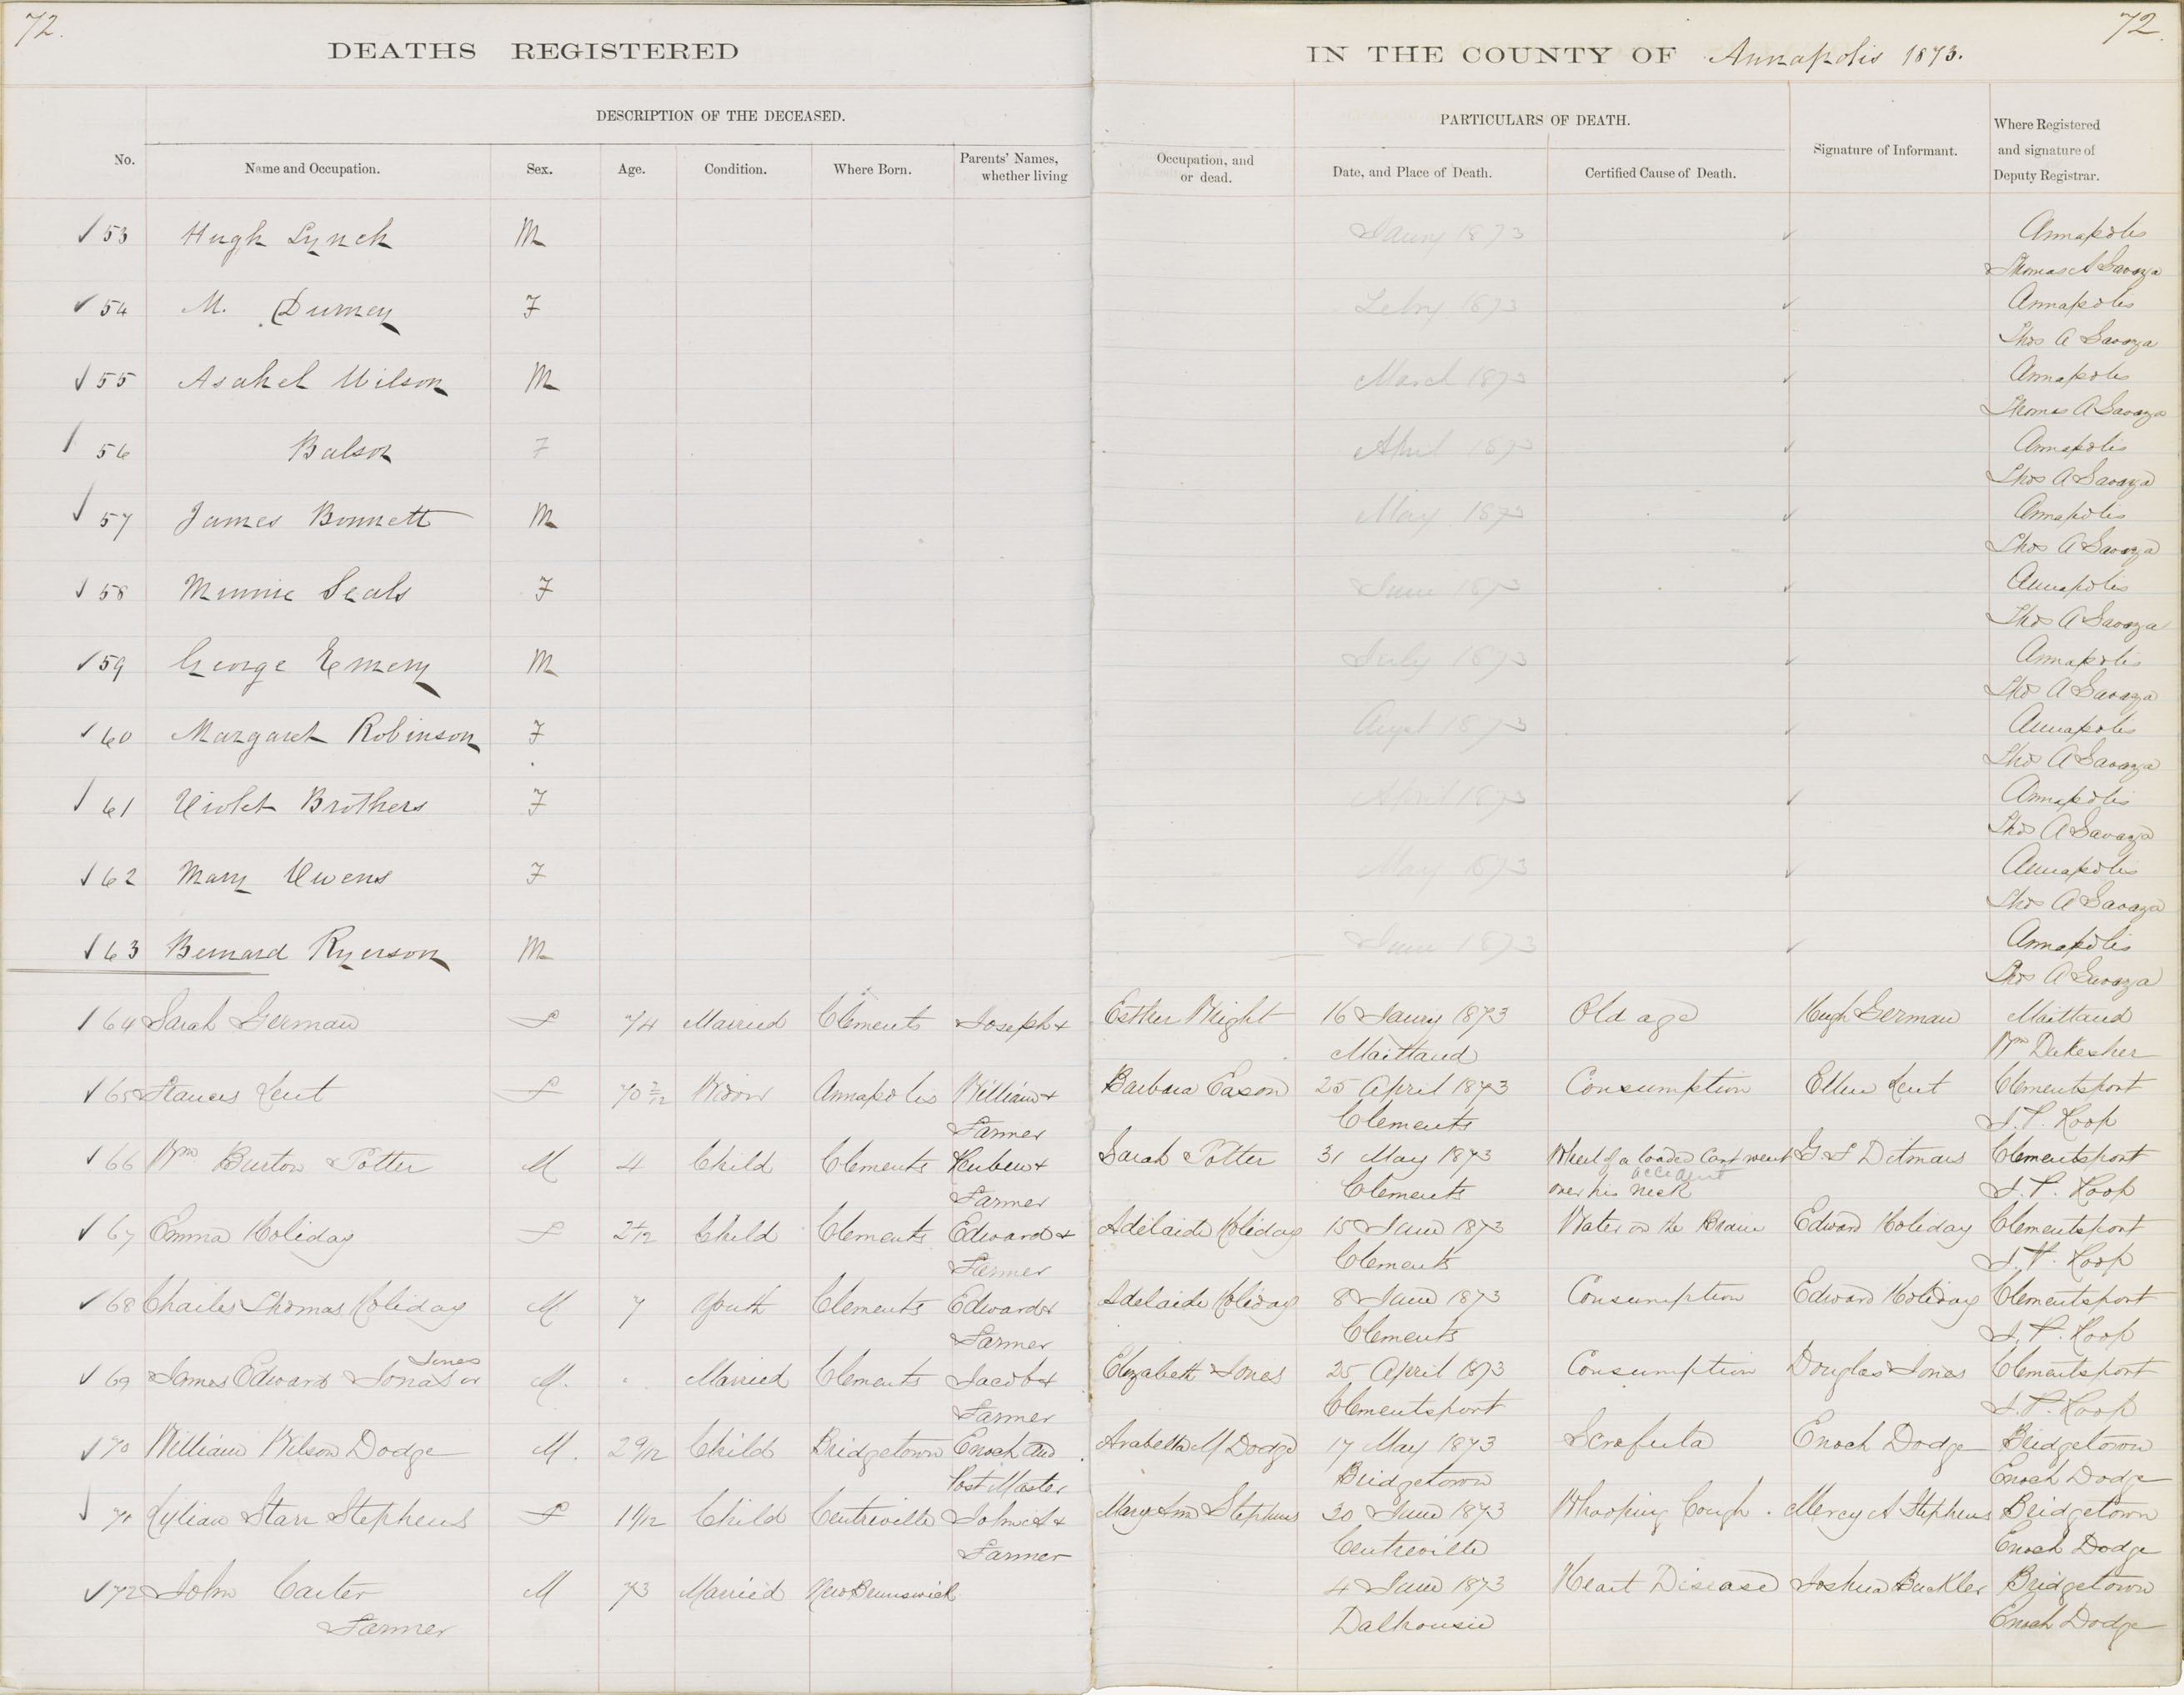 72.
72.
DEATHS REGISTERED IN THE COUNTY OF Annapolis 1873.
DESCRIPTION OF THE DECEASED. PARTICULARS OF DEATH.
No. Name and Occupation. Sex. Age. Condition. Where Born. Parents' Names, whether living Occupation, and or dead. Date, and Place of Death. Certified Cause of Death. Signature of Informant. Where Registered and signature of Deputy Registrar.
53 Hugh Lynch M Jany 1873 Annapolis
Thomas A Gavaza
54 M. Durney F Feby 1873 Annapolis
Thos A Gavaza
55 Asahel Wilson M March 1873 Annapolis
Thomas A Gavaza
56 Balsor F April 1873 Annapolis
Thos A Gavaza
57 James Bonnett M May 1873 Annapolis
Thos A Gavaza
58 Minnie Seals F June 1873 Annapolis
Thos A Gavaza
59 George Emery M July 1873 Annapolis
Thos A Gavaza
60 Margaret Robinson F Augst 1873 Annapolis
Thos A Gavaza
61 Violet Brothers F April 1873 Annapolis
Thos A Gavaza
62 Mary Owens F May 1873 Annapolis
Thos A Gavaza
63 Bernard Ryerson M June 1873 Annapolis
Thos A Gavaza
64 Sarah German F 74 Married Clements Joseph & Esther Wright 16 Jany 1873 Old age Hugh German Maitland
Maitland Wm Dukesher
65 Frances Lent F 70 2/12 Widow Annapolis William & Barbara Eason 25 April 1873 Consumption Ellen Lent Clementsport
Farmer Clements J. P. Roop
66 Wm Burton Potter M 4 Child Clements Reuben & Sarah Potter 31 May 1873 Wheel of a loaded Cart went G S Ditmars Clementsport
accident
Farmer Clements over his neck J. P. Roop
67 Emma Holiday F Child Clements Edward & Adelaide Holiday 15 June 1873 Water on the Brain Edward Holiday Clementsport
Farmer Clements J. P. Roop
68 Charles Thomas Holiday M 7 Youth Clements Edward & Adelaide Holiday 8 June 1873 Consumption Edward Holiday Clementsport
Farmer Clements J. P. Roop
Jones
69 James Edward Jonas or M. Married Clements Jacob & Elizabeth Jones 25 April 1873 Consumption Douglas Jones Clementsport
Farmer Clementsport J. P. Roop
70 William Wilson Dodge M. 2 9/12 Child Bridgetown Enoch and Arabella M Dodge 17 May 1873 Scrofula Enoch Dodge Bridgetown
Post Master Bridgetown Enoch Dodge
71 Lylian Starr Stephens F 11/12 Child Centreville & Mary Ann Stephens 30 June 1873 Whooping Cough. Mercy A Stephens Bridgetown
Farmer Centreville Enoch Dodge
72 John Carter M 73 Married New Brunswick 4 June 1873 Heart Disease Joshua Buckler Bridgetown
Farmer Dalhousie Enoch Dodge